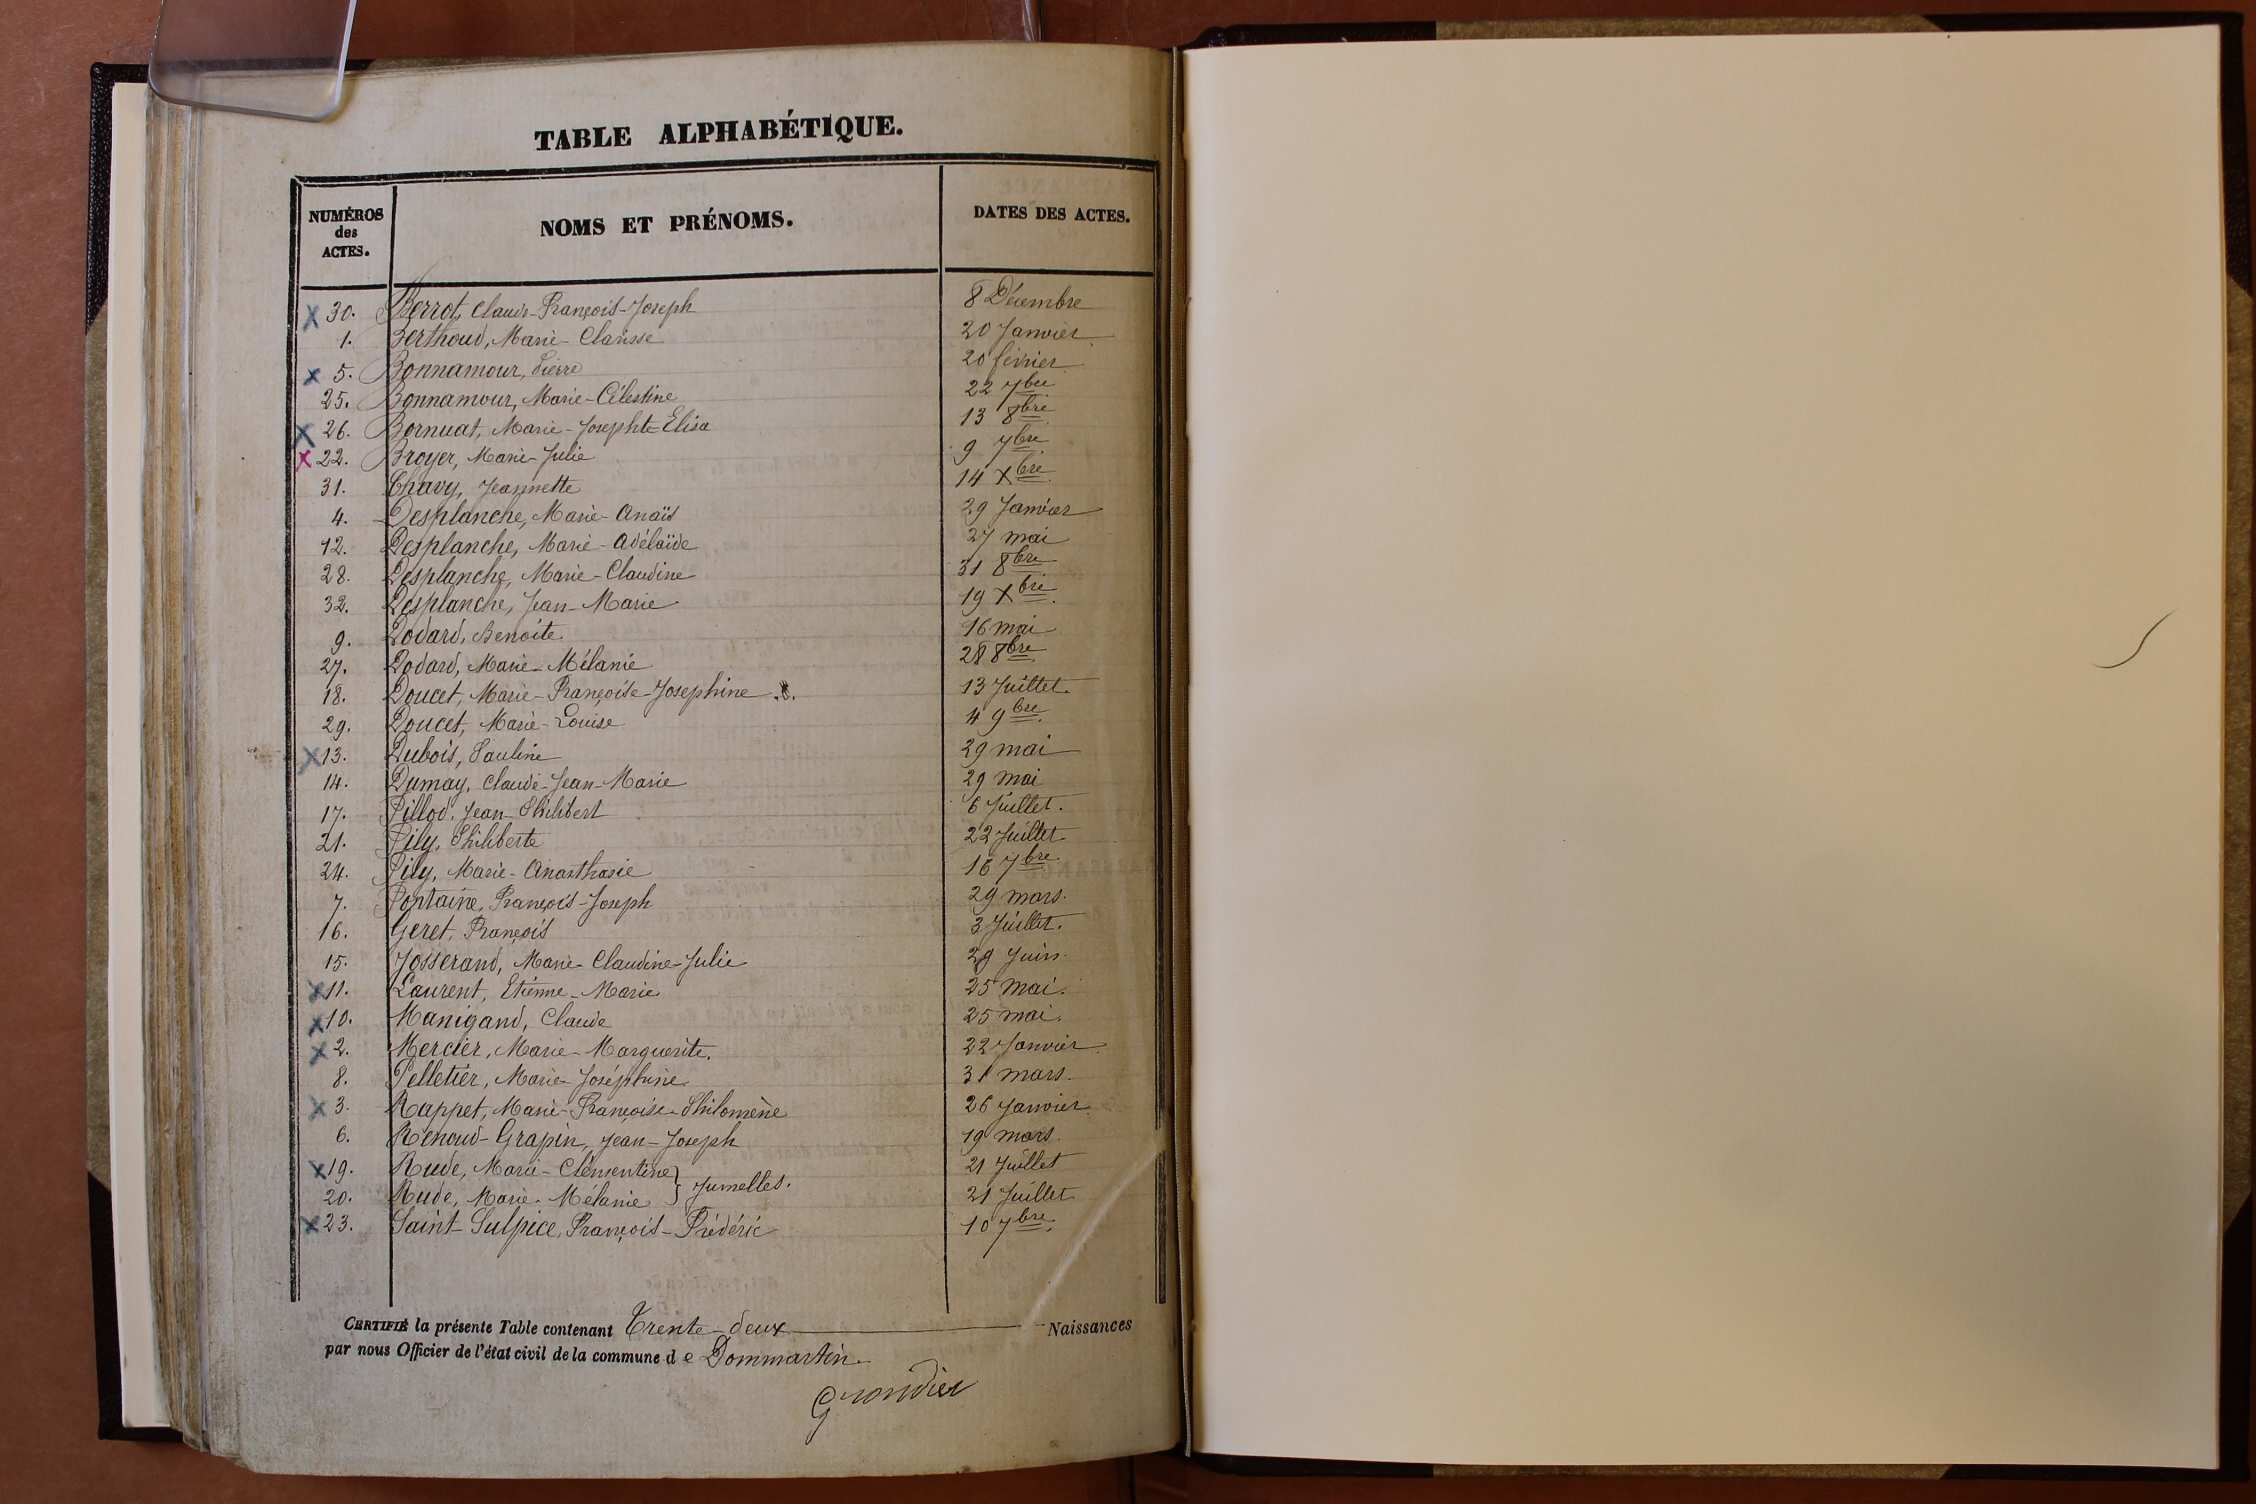 TABLE ALPHABÉTIQUE.
NUMÉROS des ACTES. NOMS ET PRÉNOMS. DATES DES ACTES.
30. Berrot, Claude-François-Joseph 8 Décembre
1. Berthoud, Marie-Clarisse 20 Janvier
5. Bonnamour, Pierre 20 février
25. Bonnamour, Marie-Célestine 22 7bre
26. Bornuat, Marie-Josephte-Elisa 13 8bre
22. Broyer, Marie-Julie 9 7bre
31. Chavy, Jeannette 14 Xbre
4. Desplanche, Marie-Anaïs 29 Janvier
12. Desplanche, Marie-Adélaïde 27 mai
28. Desplanche, Marie-Claudine 31 8bre
32. Desplanche, Jean-Marie 19 Xbre
9. Dodard, Benoite 16 mai
27. Dodard, Marie-Mélanie 28 8bre
18. Doucet, Marie-Françoise-Josephine 13 Juillet.
29. Doucet, Marie-Louise 4 9bre
13. Dubois, Pauline 29 mai
14. Dumay, Claude-Jean-Marie 29 mai
17. Fillod, Jean-Philibert 6 Juillet.
21. Fily, Philiberte 22 Juillet
24. Fily, Marie-Anasthasie 16 7bre
7. Fontaine, François-Joseph 29 mars.
16. Geret, François 3 Juillet.
15. Josserand, Marie-Claudine-Julie 29 Juin.
11. Laurent, Etienne-Marie 25 mai.
10. Manigand, Claude 25 mai.
2. Mercier, Marie-Marguerite. 22 Janvier
8. Pelletier, Marie-Joséphine 31 mars.
3. Rappet, Marie-Françoise-Philomène 26 Janvier
6. Renoud-Grapin, Jean-Joseph 19 mars
19. Rude, Marie-Clémentine } Jumelles. 21 Juillet
20. Rude, Marie-Mélanie 21 Juillet
23. Saint-Sulpice, François-Frédéric 10 7bre.
CERTIFIÉ la présente Table contenant Trente-deux Naissances
par nous Officier de l'état civil de la commune de Dommartin
Grondier